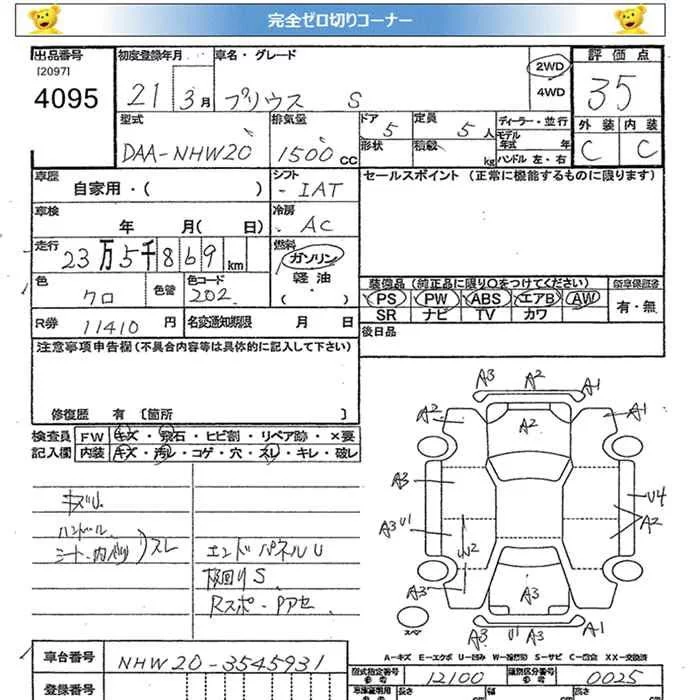 完全ゼロ切りコーナー
出品番号 初度登録年月 車名・グレード 評価点
[2097] 2WD
4095 21 3月 プリウス S 4WD 35
型式 排気量 ドア 定員 ディーラー・並行 外装 内装
5 5人 モデル年式 年
DAA-NHW20 1500cc 形状 積載 kg ハンドル 左・右 C C
車歴 自家用・( ) シフト IAT セールスポイント (正常に機能するものに限ります)
車検 年 月( 日) 冷房 AC
走行 23万5千869km 燃料 ガソリン
軽油
・( )
色 クロ 色替 色コード 202 装備品 (純正品に限り○をつけてください) 保証書
PS PW ABS エアB AW 有・無
SR ナビ TV カワ
R券 11410円 名変通知期限 月 日 後日品
注意事項申告欄(不具合内容等は具体的に記入して下さい)
修復歴 有 [箇所 ]
検査員 FW キズ・飛石・ヒビ割・リペア跡・×要
記入欄 内装 キズ・汚レ・コゲ・穴・スレ・キレ・破レ
A3 A2 A1
A2 A2 A1
A3 U4
A3 U1 A2
U2
A3 A3
A3 U1 A3 A1
スペア
キズU
ハンドル
シート・内バリ)スレ エンドパネルU
下回りS
Rスポ・Pアセ
A-キズ E-エクボ U-凹み W-補修跡 S-サビ C-腐食 XX-交換済
車台番号 NHW20-3545931 型式指定番号 参考 12100 類別区分番号 参考 0025
登録番号 長さ 幅 高さ